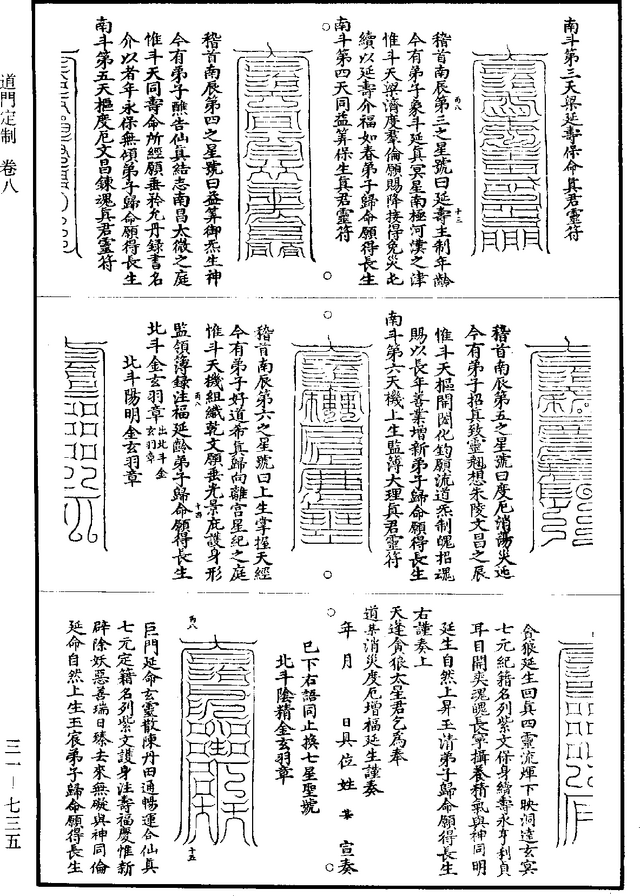 南斗第三天梁延壽保命真君靈符
稽首南辰第三之星號曰延壽主制年齡
今有弟子奏斗延真冥星南極河漢之津
惟斗天梁濟度羣倫願賜降接得免災屯
續以延壽介福如春弟子歸命願得長生
南斗第四天同益筭保生真君靈符
稽首南辰第四之星號曰益筭御炁生神
今有弟子醮告仙真結志南昌太微之庭
惟斗天同壽命所經願垂矜允丹録書名
介以者年永保無傾弟子歸命願得長生
南斗第五天樞度厄文昌鍊魂真君靈符
稽首南辰第五之星號曰度厄消蕩災迍
今有弟子招真致靈翹想朱陵文昌之辰
惟斗天樞開闔化鈞願流道炁制魄招魂
賜以長年善業增新弟子歸命願得長生
南斗第六天機上生監簿大理真君靈符
稽首南辰第六之星號曰上生掌握天經
今有弟子好道希真歸向離宫星紀之庭
惟斗天機組織乾文願垂光景庇護身形
監領簿録注福延齡弟子歸命願得長生
北斗金玄羽章出北斗金玄羽章
北斗陽明金玄羽章
貪狼延生回真四靈流煇下映洞達玄冥
七元紀籍名列紫文保身續壽永亨利貞
耳目開爽魂魄長寧攝養精氣與神同明
延生自然上昇玉清弟子歸命願得長生
右謹奏上
天蓬貪狼太星君乞為奉
道某消災度厄增福延生謹奏
年 月 日具位姓 某 宣奏
已下右語同止換七星聖號
北斗陰精金玄羽章
巨門延命玄靈散陳丹田通暢運合仙真
七元定籍名列紫文護身注壽福慶惟新
辟除妖惡善瑞日臻去來無礙與神同倫
延命自然上生玉宸弟子歸命願得長生
道門定制 卷八
三一－七三五